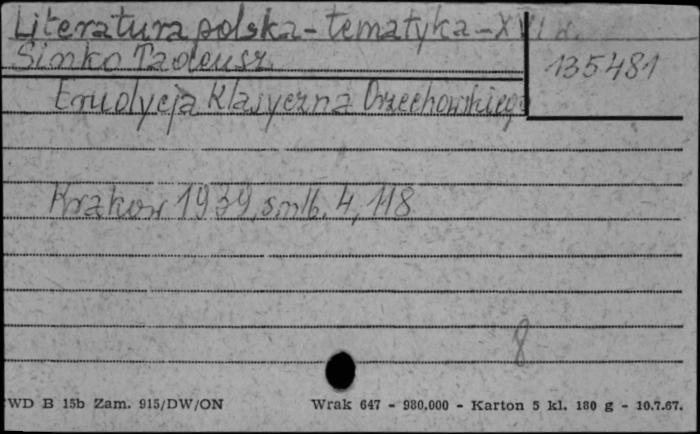 Literatura polska - tematyka - XVI w.
Sinko Tadeusz.
135481
Erudycja Klasyczna Orzechowskiego
Krakow 1939, s.nlb. 4, 118
8
WD B 15b Zam. 915/DW/ON Wrak 647 - 980.000 - Karton 5 kl. 180 g - 10.7.67.